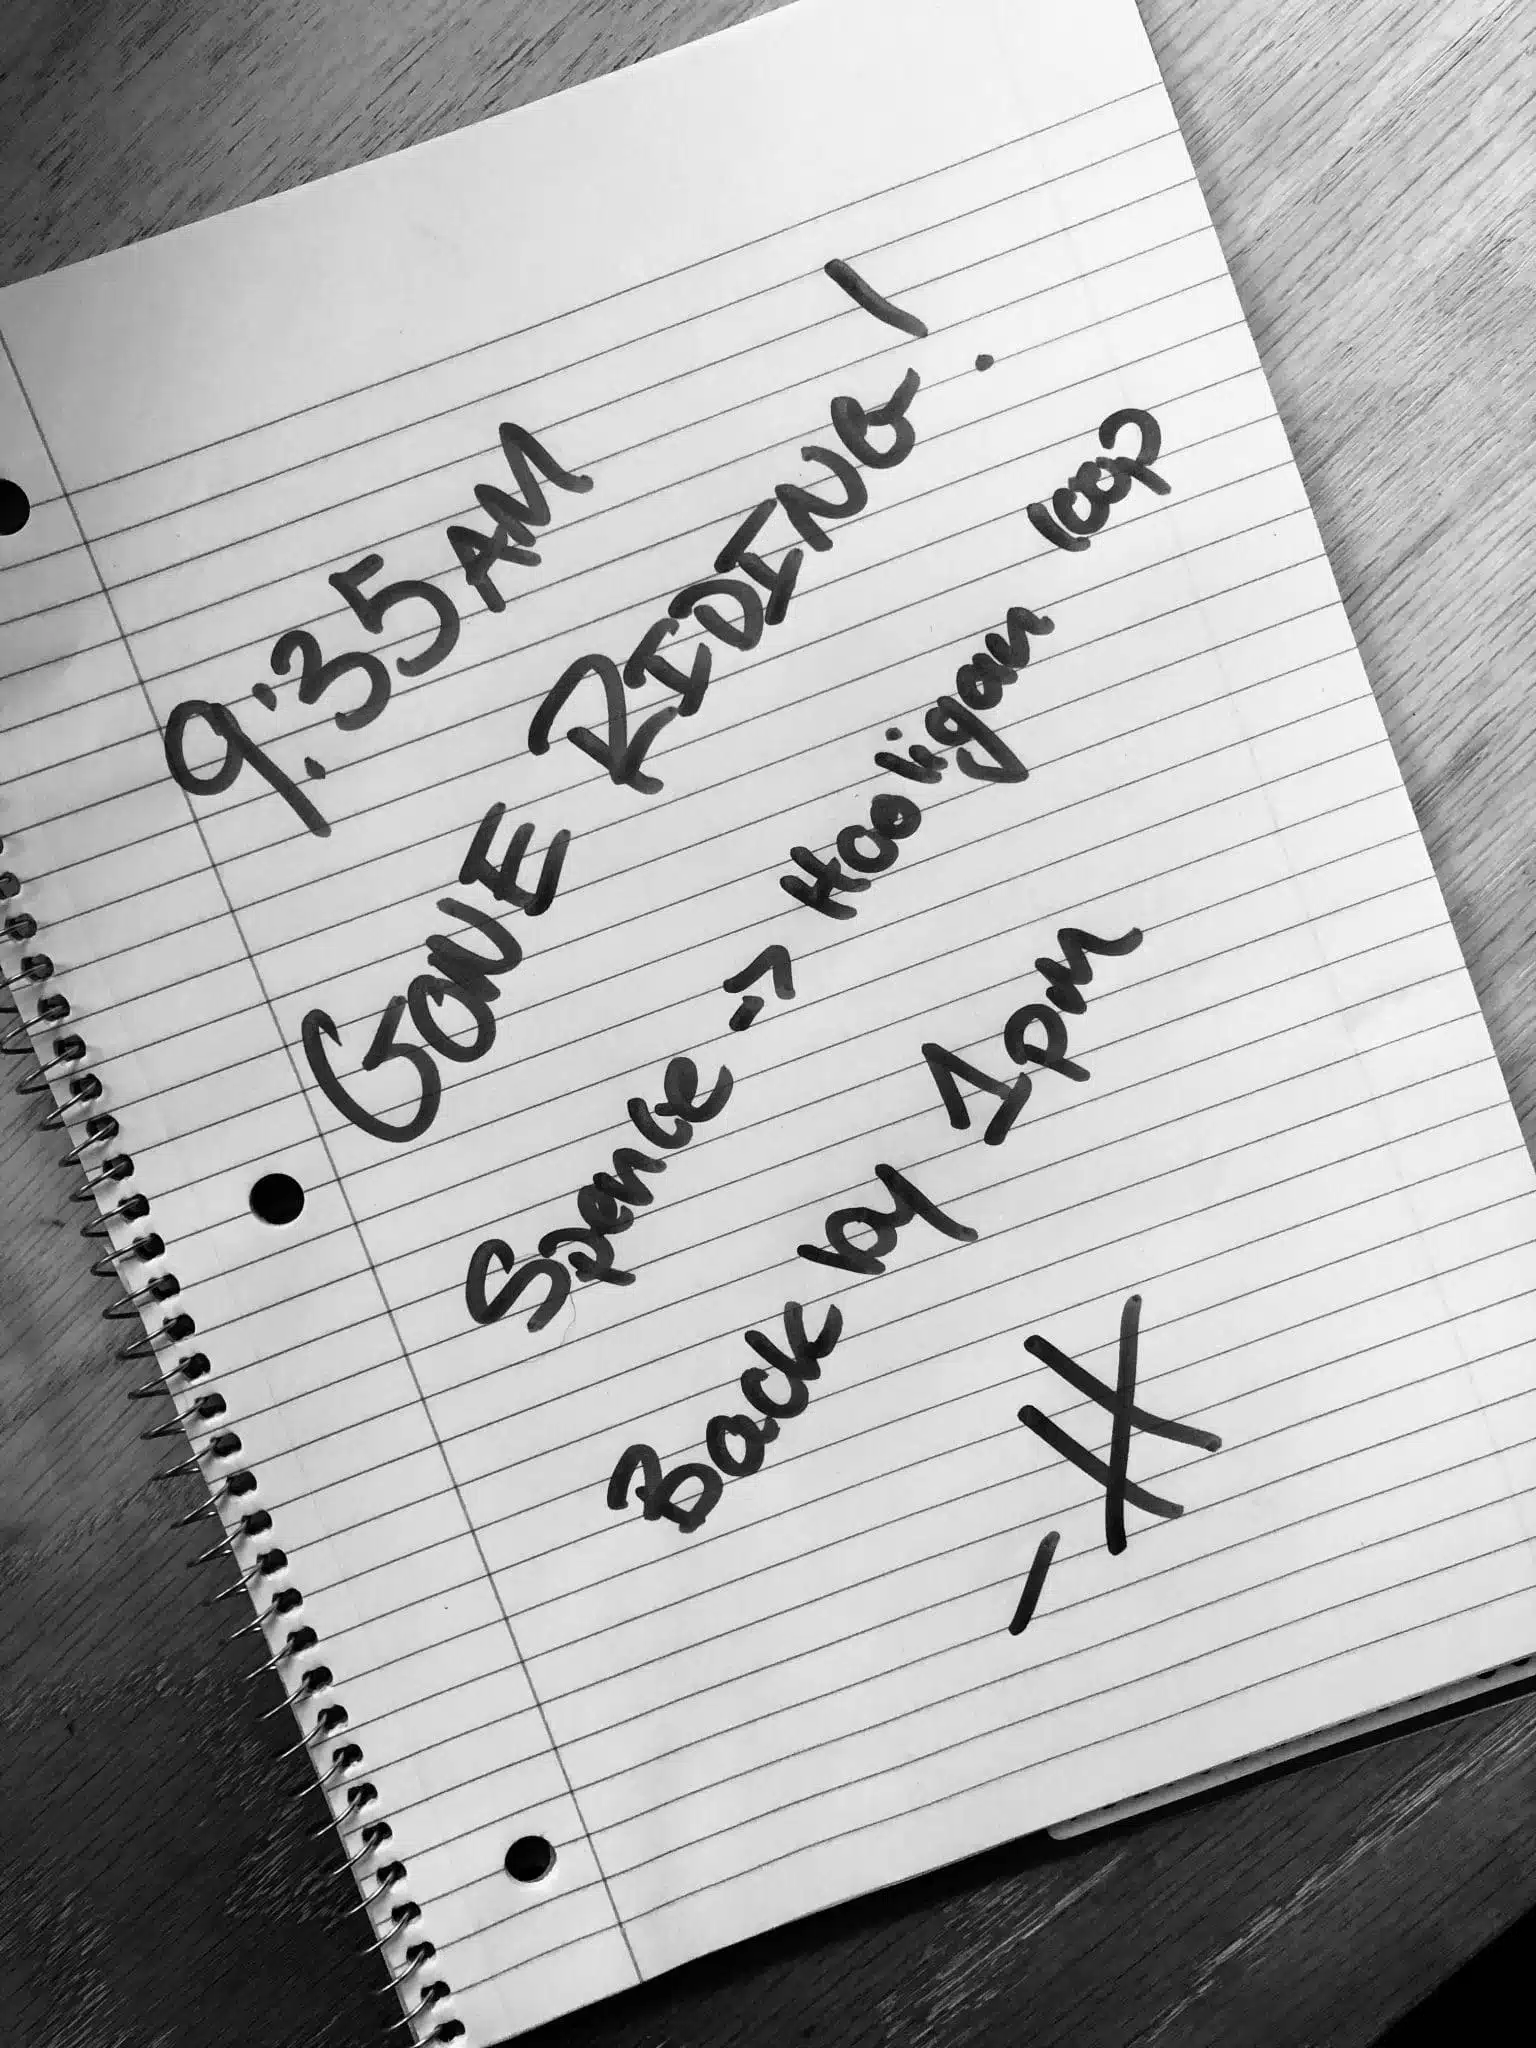 9:35AM
GONE RIDING!
Spence -> Hooligan loop
Back by 1pm